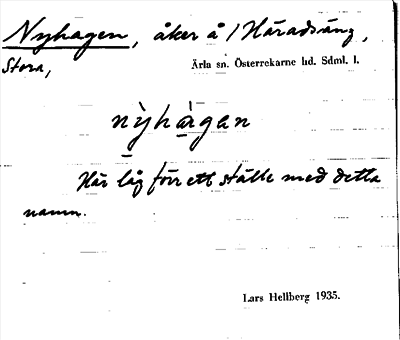 Nyhagen, åker å / Häradsäng,
Stora,
Ärla sn. Österrekarne hd. Sdml. l.
nỳhàgan
Här låg förr ett ställe med detta
namn.
Lars Hellberg 1935.